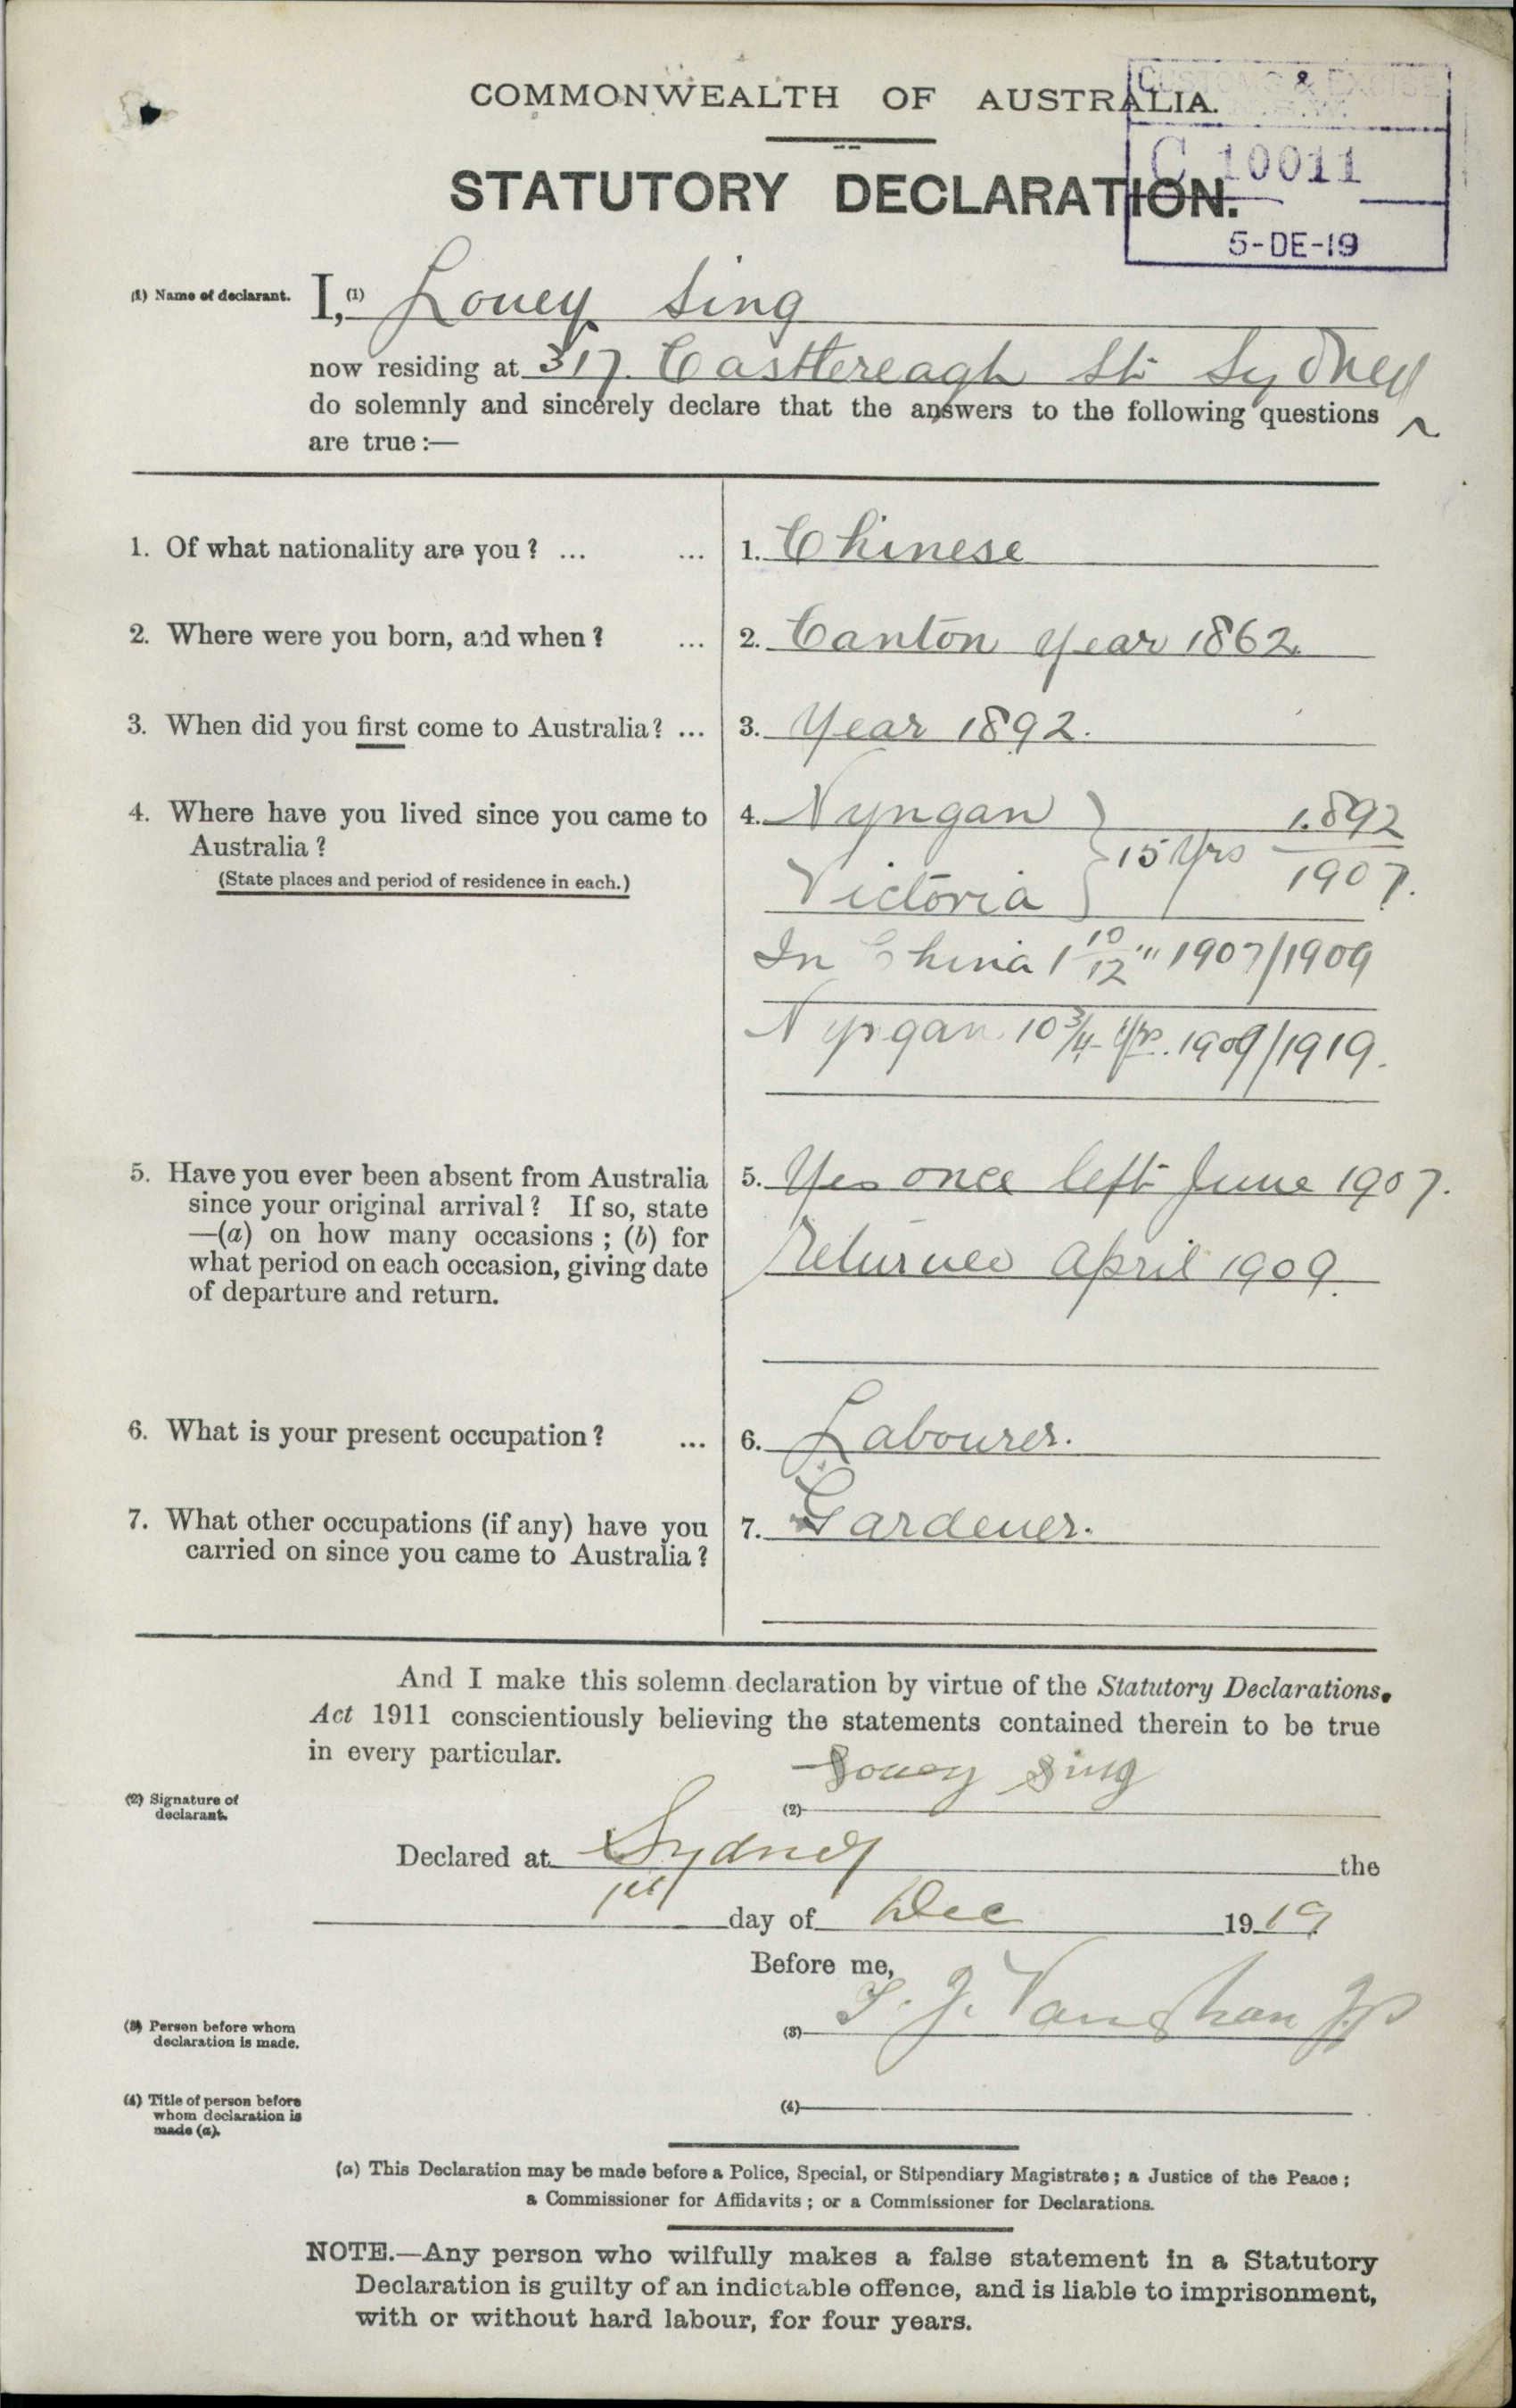 COMMONWEALTH OF AUSTRALIA.
CUSTOMS & EXCISE
N.S.W.
C 10011
STATUTORY DECLARATION.
5-DE-19
(1) Name of declarant. I, (1) Louey Sing
now residing at 317. Castlereagh St Sydney
do solemnly and sincerely declare that the answers to the following questions
are true :—
1. Of what nationality are you ? ... ... 1. Chinese
2. Where were you born, and when ? ... 2. Canton Year 1862.
3. When did you first come to Australia? ... 3. Year 1892.
4. Where have you lived since you came to 4. Nyngan 1892
Australia ? 15 Yrs
(State places and period of residence in each.) Victoria 1907.
In China 1 10/12 " 1907/1909
Nyngan 10 3/4 Yrs. 1909/1919.
5. Have you ever been absent from Australia 5. Yes once left June 1907.
since your original arrival ? If so, state
—(a) on how many occasions ; (b) for
what period on each occasion, giving date Returned April 1909.
of departure and return.
6. What is your present occupation ? ... 6. Labourer.
7. What other occupations (if any) have you 7. Gardener.
carried on since you came to Australia ?
And I make this solemn declaration by virtue of the Statutory Declarations
Act 1911 conscientiously believing the statements contained therein to be true
in every particular.
(2) Signature of
declarant. (2) Louey Sing
Declared at Sydney the
1st day of Dec 1919
Before me,
(3) Person before whom
declaration is made. (3) J. Vaughan JP
(4) Title of person before
whom declaration is
made (a). (4)
(a) This Declaration may be made before a Police, Special, or Stipendiary Magistrate ; a Justice of the Peace ;
a Commissioner for Affidavits ; or a Commissioner for Declarations.
NOTE.—Any person who wilfully makes a false statement in a Statutory
Declaration is guilty of an indictable offence, and is liable to imprisonment,
with or without hard labour, for four years.